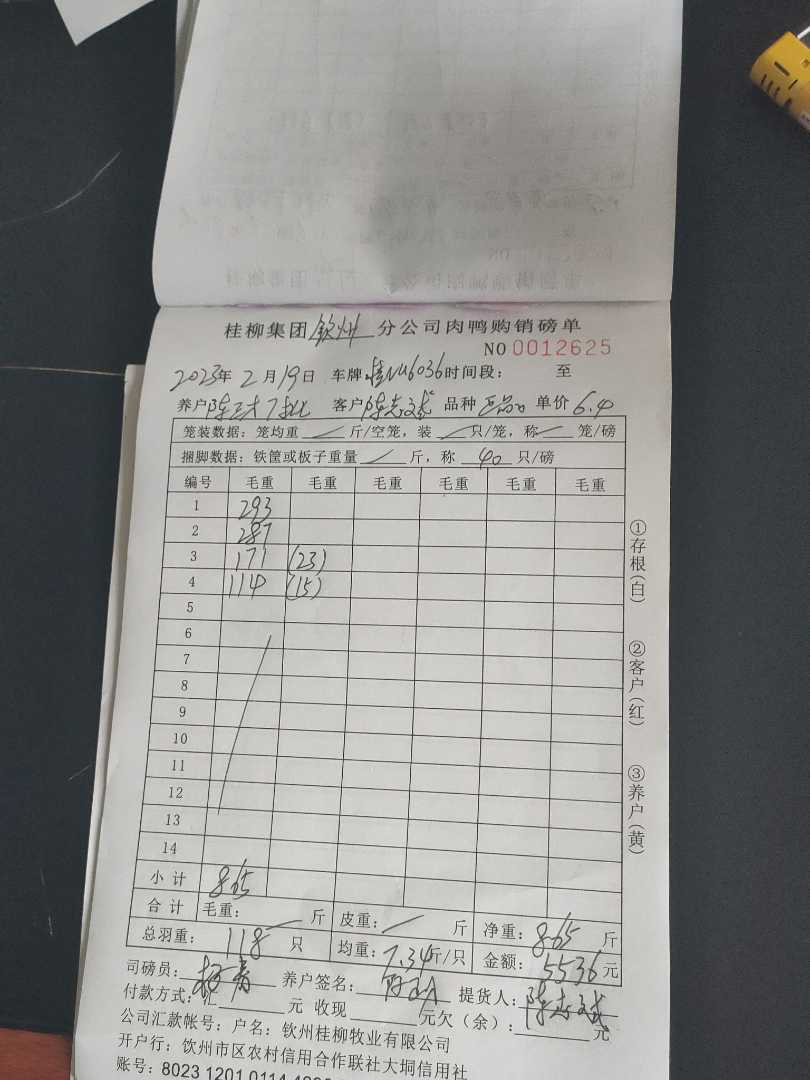 桂柳集团 钦州 分公司肉鸭购销磅单
NO 0012625
2023年 2月19日 车牌 桂NU6036 时间段： 至
养户 陈三才7批 客户 陈志文 品种 单价 6.4
笼装数据：笼均重 ／ 斤/空笼，装 ／ 只/笼，称 ／ 笼/磅
捆脚数据：铁筐或板子重量 ／ 斤，称 40 只/磅
编号 毛重 毛重 毛重 毛重 毛重 毛重
1 293
2 287
3 171 (23)
4 114 (15)
5
6
7
8
9
10
11
12
13
14
小计 865
合计 毛重： ／ 斤 皮重： ／ 斤 净重：865 斤
总羽重： 118 只 均重：7.34斤/只 金额：5536元
司磅员： 养户签名： 提货人：陈志文
付款方式：汇 元 收现 元欠（余）： 元
公司汇款帐号：户名：钦州桂柳牧业有限公司
开户行：钦州市区农村信用合作联社大垌信用社
账号：8023 1201 0114
①存根（白）
②客户（红）
③养户（黄）